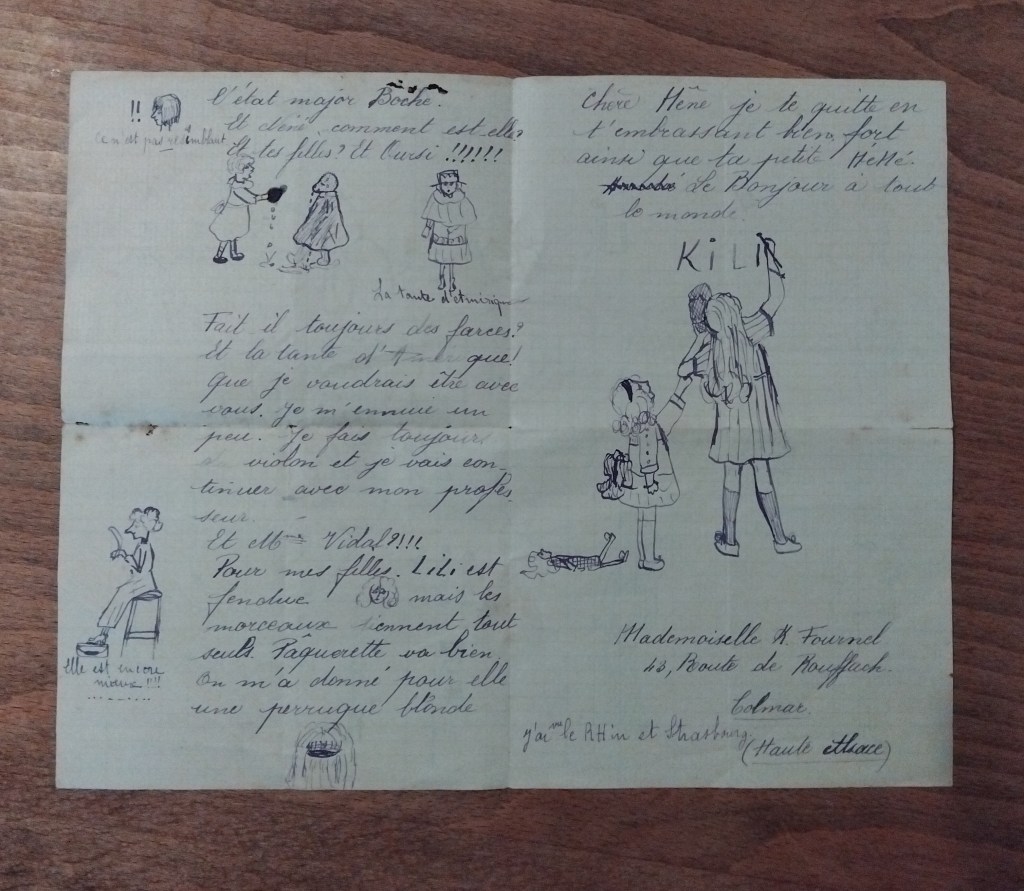 l'état major Boche.
!!
ce n'est pas ressemblant
Et dédé, comment est-elle?
Et tes filles? Et Oursi !!!!!!
La tante d'Amérique
Fait il toujours des farces?
Et la tante d'Amérique!
Que je voudrais être avec
vous. Je m'ennuie un
peu. Je fais toujours
violon et je vais con-
tinuer avec mon profes-
seur.
Et Mme Vidal?!!!
Pour mes filles. LiLi est
fendue mais les
morceaux tiennent tout
seuls. Pâquerette va bien
On m'a donné pour elle
une perruque blonde
elle est encore
mieux !!!!
Chère Hêne je te quitte en
t'embrassant bien fort
ainsi que ta petite HéHé.
Le Bonjour à tout
le monde.
KiLi
Mademoiselle K. Fournel
43, Route de Rouffach.
Colmar.
(Haute Alsace)
j'ai vu le RHin et Strasbourg.